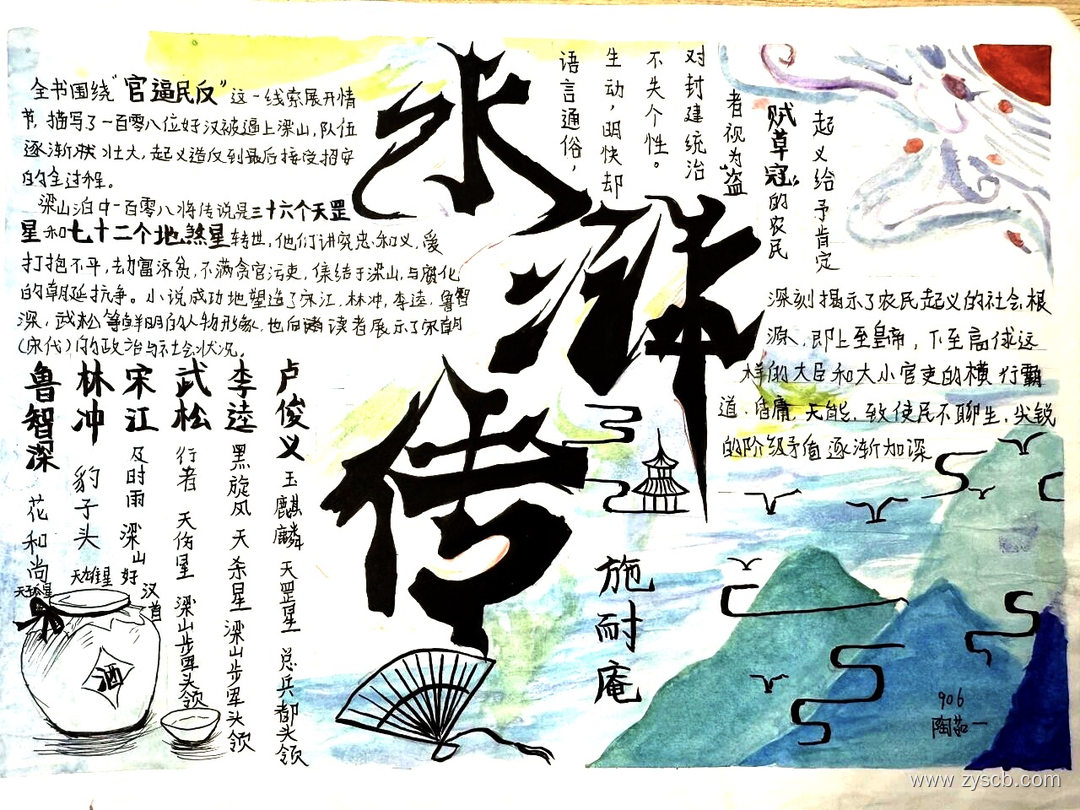 水浒传
施耐庵
全书围绕“官逼民反”这一线索展开情
节,描写了一百零八位好汉被逼上梁山,队伍
逐渐状壮大,起义造反到最后接受招安
的全过程。
梁山泊中一百零八将传说是三十六个天罡
星和七十二个地煞星转世,他们讲究忠和义,爱
打抱不平,劫富济贫,不满贪官污吏,集结于梁山,与腐化
的朝廷抗争。小说成功地塑造了宋江,林冲,李逵,鲁智
深,武松等鲜明的人物形象,也向读者展示了宋朝
(宋代)的政治与社会状况,
鲁智深 花和尚 天孤星
林冲 豹子头 天雄星
宋江 及时雨 梁山好汉首
武松 行者 天伤星 梁山步军头领
李逵 黑旋风 天杀星 梁山步军头领
卢俊义 玉麒麟 天罡星 总兵都头领
酒
语言通俗,
生动,明快却
不失个性。
对封建统治
者视为盗
贼草寇”的农民
起义给予肯定
深刻揭示了农民起义的社会根
源,即上至皇帝,下至高俅这
样的大臣和大小官吏的横行霸
道,昏庸,无能,致使民不聊生,尖锐
的阶级矛盾逐渐加深
906
www.zyscb.com